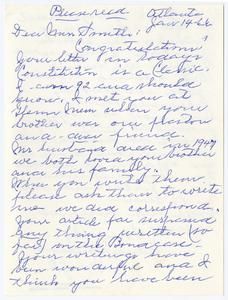 Please read
Atlanta
Jan 14-66
Dear Miss Smith:
Congratulations
Your letter in todays
Constitution is a Classic.
I am 92 and should
know. I met you at
when your
brother was our pastor
and dear friend.
My husband died in 1947
we both loved your brother
and his family.
When you write them
please ask them to write
me we did correspond.
Your article far surpassed
any thing written (so
far) on the Bond case.
Your writings have
been wonderful and I
think you have been